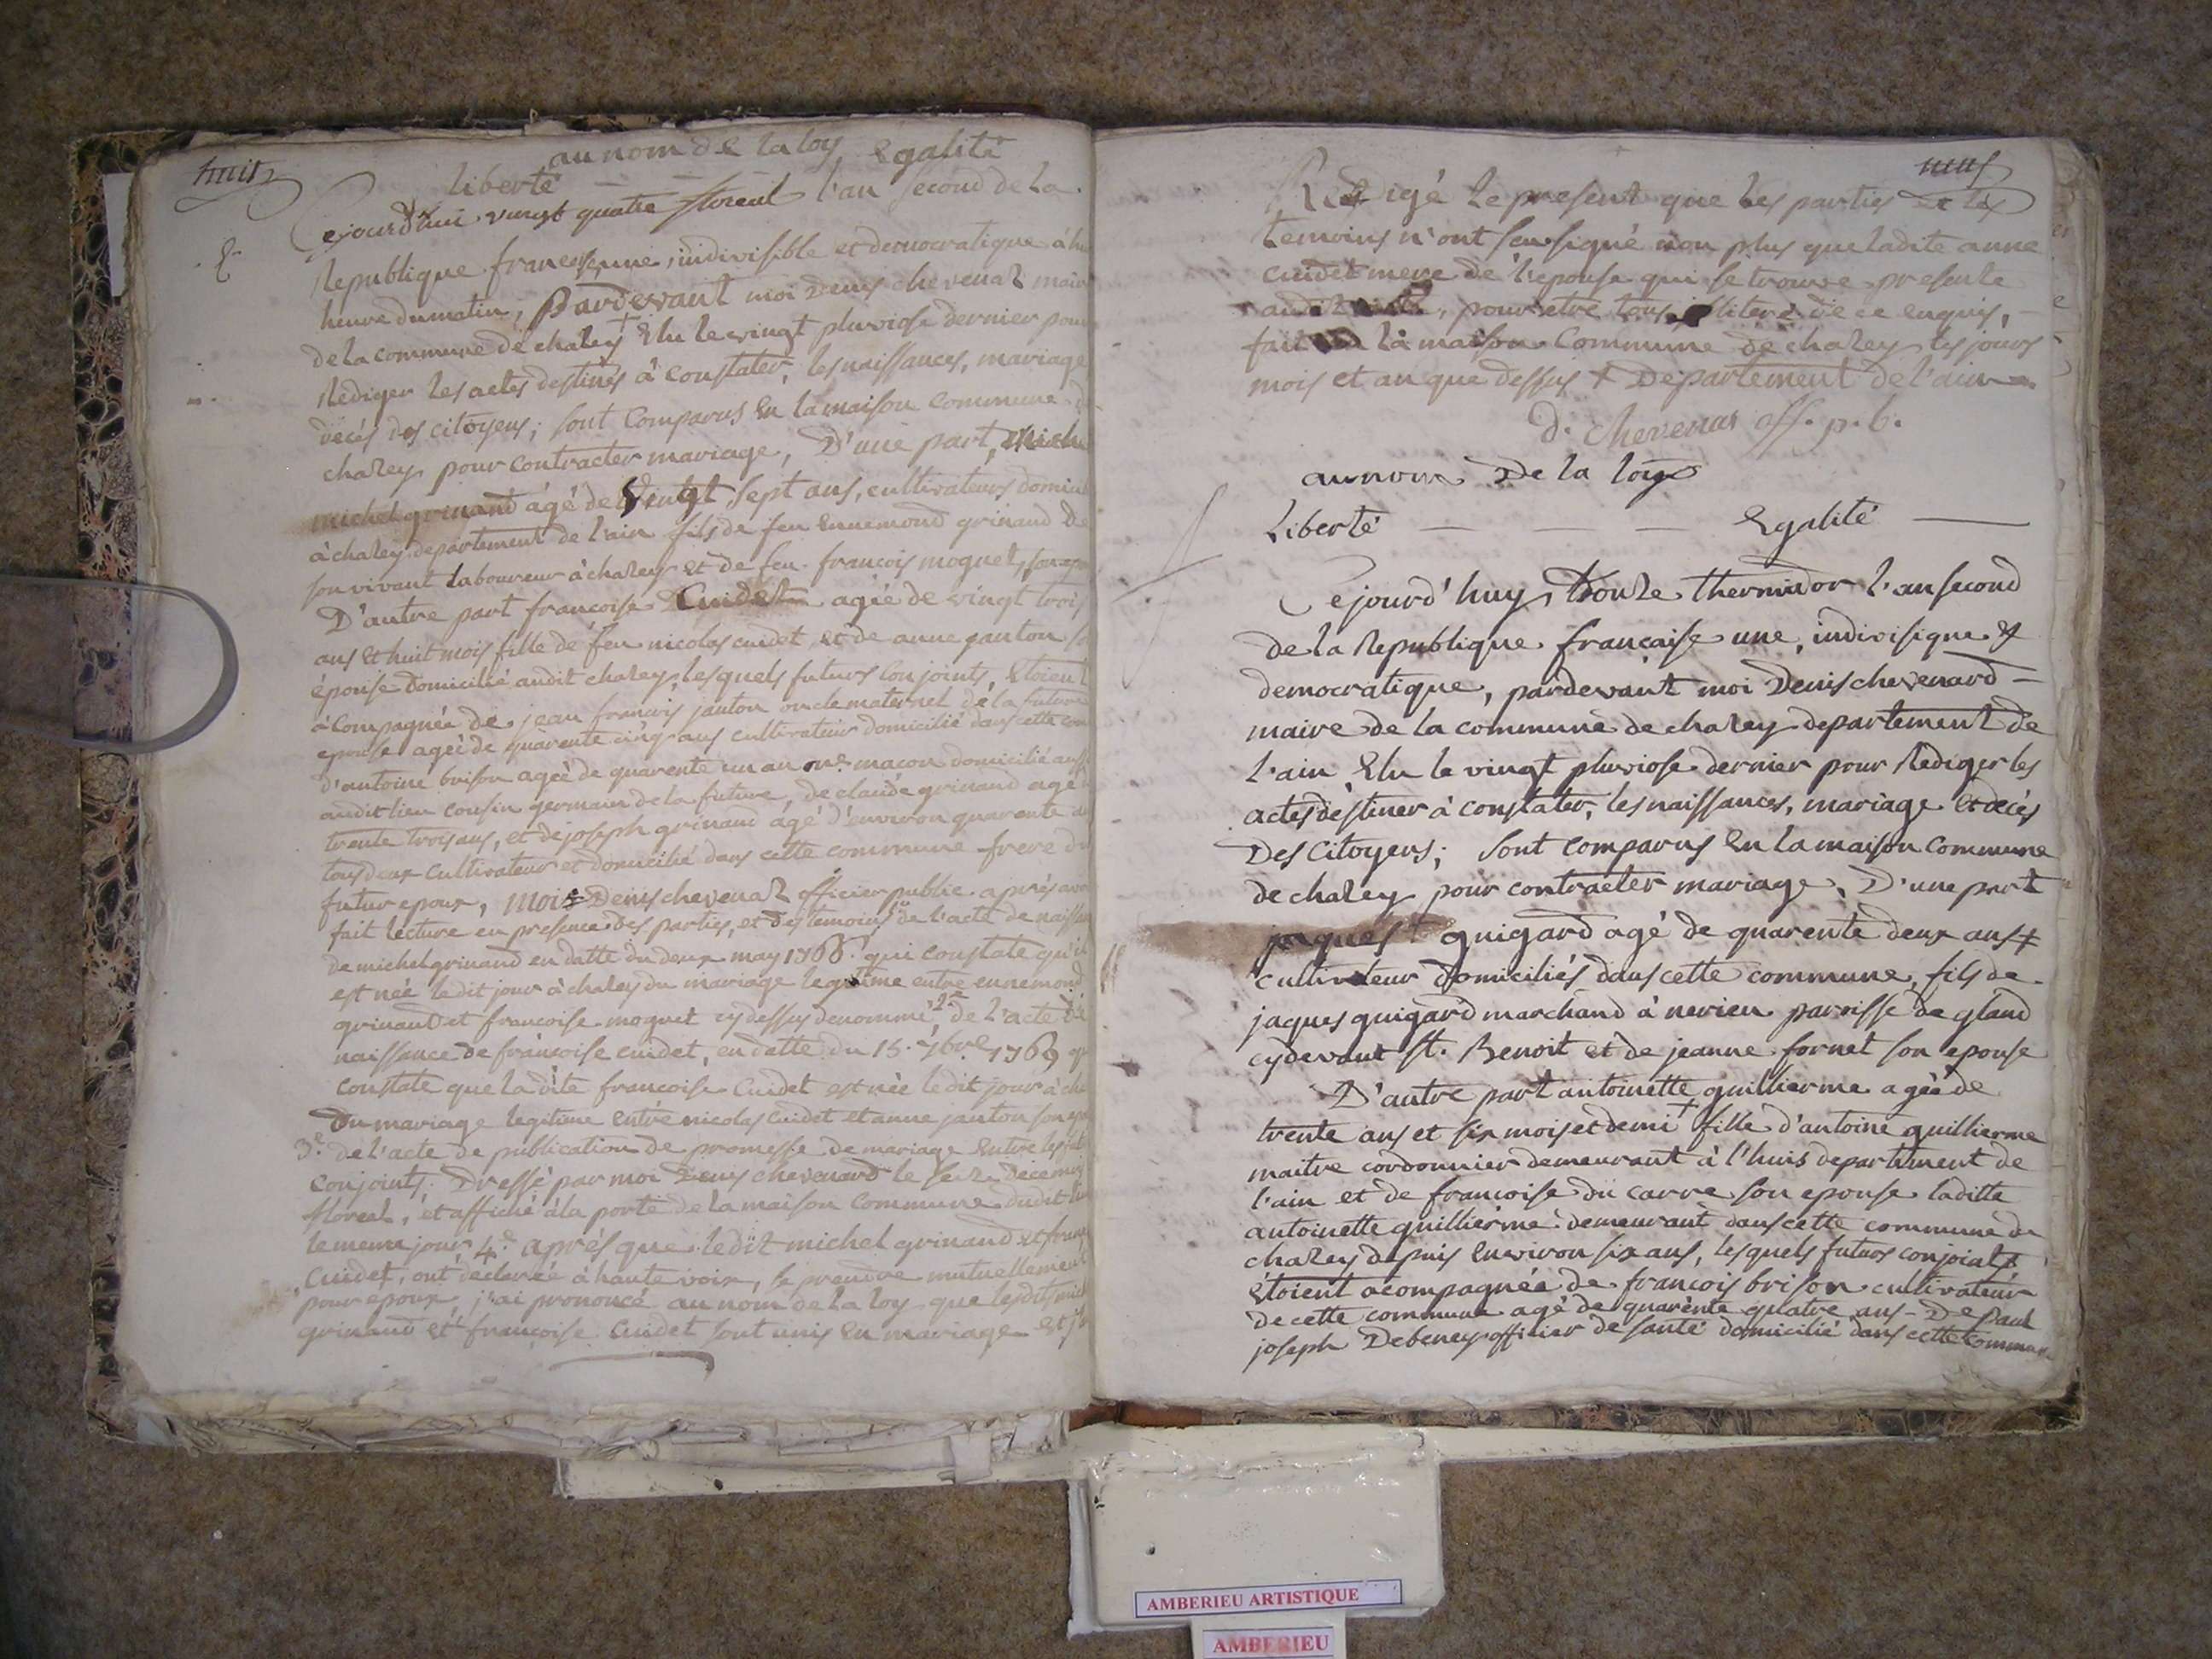 huit
au nom de la loy
liberté — — — Egalité
Cejourd'hui vingt quatre floreal l'an second de la
Republique francoise, une, indivisible et democratique à
heure du matin, Pardevant moi Denis chevenat maire
de la commune de chaley + Elu le vingt pluviose dernier pour
Rediger les actes destinés à constater, les naissances, mariage
décés des citoyens; sont Comparus En la maison Commune
chaley pour contracter mariage, D'une part,
michel grinand agé de vingt sept ans, cultivateurs
à chaley departement de l'ain fils de feu Ennemond grinand De
son vivant laboureur à chaley Et de feu francois moquet, son
D'autre part francoise Cuidet agée de vingt trois
ans Et huit mois fille de feu nicolas cuidet et de anne janton
épouse Domicilié audit chaley, lesquels futurs conjoints, Etoient
à compagnée de jean francois janton oncle maternel dé la future
epouse ageé de quarente cinq ans cultivateur domicilié dans cette
d'antoine brison ageé de quarente un an me. macon domicilié
audit lieu cousin germain de la future, de claude grinand agé
trente trois ans, et de joseph grinand agé d'environ quarente
tous deux cultivateur et domicilié dans cette commune frere
futur epoux, moi Denis chevenat officier public aprés
fait lecture en presence des parties, et des temoins de l'acte de
de michel grinand en datte du deux may 1766 qui constate
est née ledit jour à chaley du mariage legitime entre ennemond
grinand et francoise moquet cy dessus denommé, 2e de l'acte de
naissance de francoise cuidet, en datte du 15. 7bre 1769
constate que la dite francoise Cuidet est née le dit jour à
Du mariage legitime Entre nicolas Cuidet et anne janton son
3e. de l'acte de publication de promesse de mariage Entre
conjoints. Dressé par moi Denis chevenard le
floreal, et affiché à la porte de la maison Commune dudit
le meme jour, 4e. aprés que ledit michel grinand et
Cuidet, ont déclarée à haute voix, se prendre mutuellement
pour epoux, j'ai prononcé au nom de la loy que lesdits
grinand et francoise Cuidet sont unis En mariage et
neuf
Redigé le present que les parties et les
temoins n'ont seu signé non plus que ladite anne
cuidet mere de l'epouse qui se trouve presente
, pour etre tous de ce enquis,
fait la maison Commune de chaley les jours
mois et an que dessus + Departement de l'ain
D. Chevenat off. p. b.
au nom De la loy
Liberté — — Egalité —
Cejourd'huy, thermidor l'an second
de la Republique francaise une, indivisique &
democratique, pardevant moi Denis chevenard —
maire de la commune de chaley departement de
l'ain Elu le vingt pluviose dernier pour Rediger les
actes déstiner à constater, les naissances, mariage Et decés
Des Citoyens; Sont comparus En la maison commune
de chaley pour contracter mariage, D'une part
jaques guigard agé de quarente deux ans +
cultivateur domiciliés dans cette commune, fils de
jaques guigard marchand à nerieu paroisse de gland
cydevant St. Benoit et de jeanne fornet son epouse
D'autre part antoinette guillierme ageé de
trente ans et six mois et demi + fille d'antoine guillierme
maitre cordonnier demeurant à l'huis departement de
l'ain et de francoise du carre son epouse laditte
antoinette guillierme demeurant dans cette commune de
chaley depuis Environ six ans, lesquels futurs conjoints
Etoient acompagnée de francois brison cultivateur
de cette commune agé de quarente quatre ans - De paul
joseph Debeney officier de santé domicilié dans cette commune
AMBERIEU ARTISTIQUE
AMBERIEU